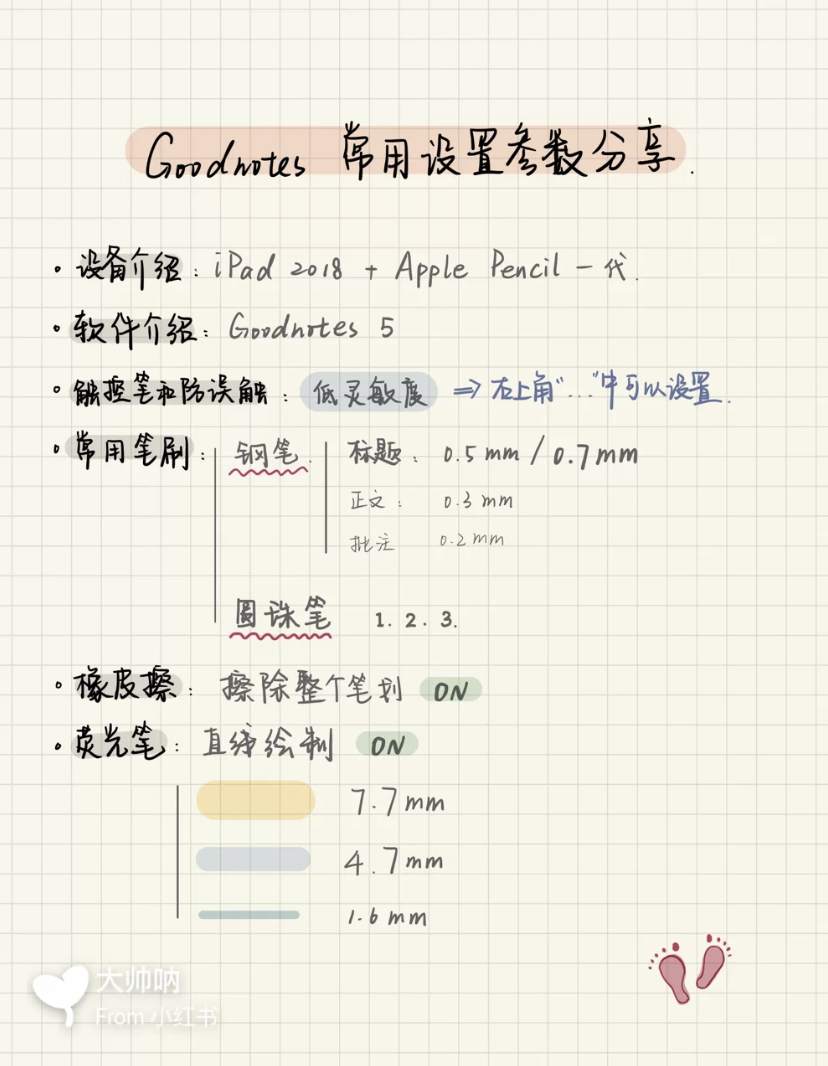 Goodnotes 常用设置参数分享.
· 设备介绍: iPad 2018 + Apple Pencil 一代.
· 软件介绍: Goodnotes 5
· 触控笔和防误触: 低灵敏度 => 右上角“...”中可以设置.
· 常用笔刷: 钢笔. 标题: 0.5 mm / 0.7 mm
正文: 0.3 mm
批注 0.2 mm
圆珠笔 1. 2. 3.
· 橡皮擦: 擦除整个笔划 ON
· 荧光笔: 直线绘制 ON
7.7 mm
4.7 mm
1.6 mm
大帅呐
From 小红书